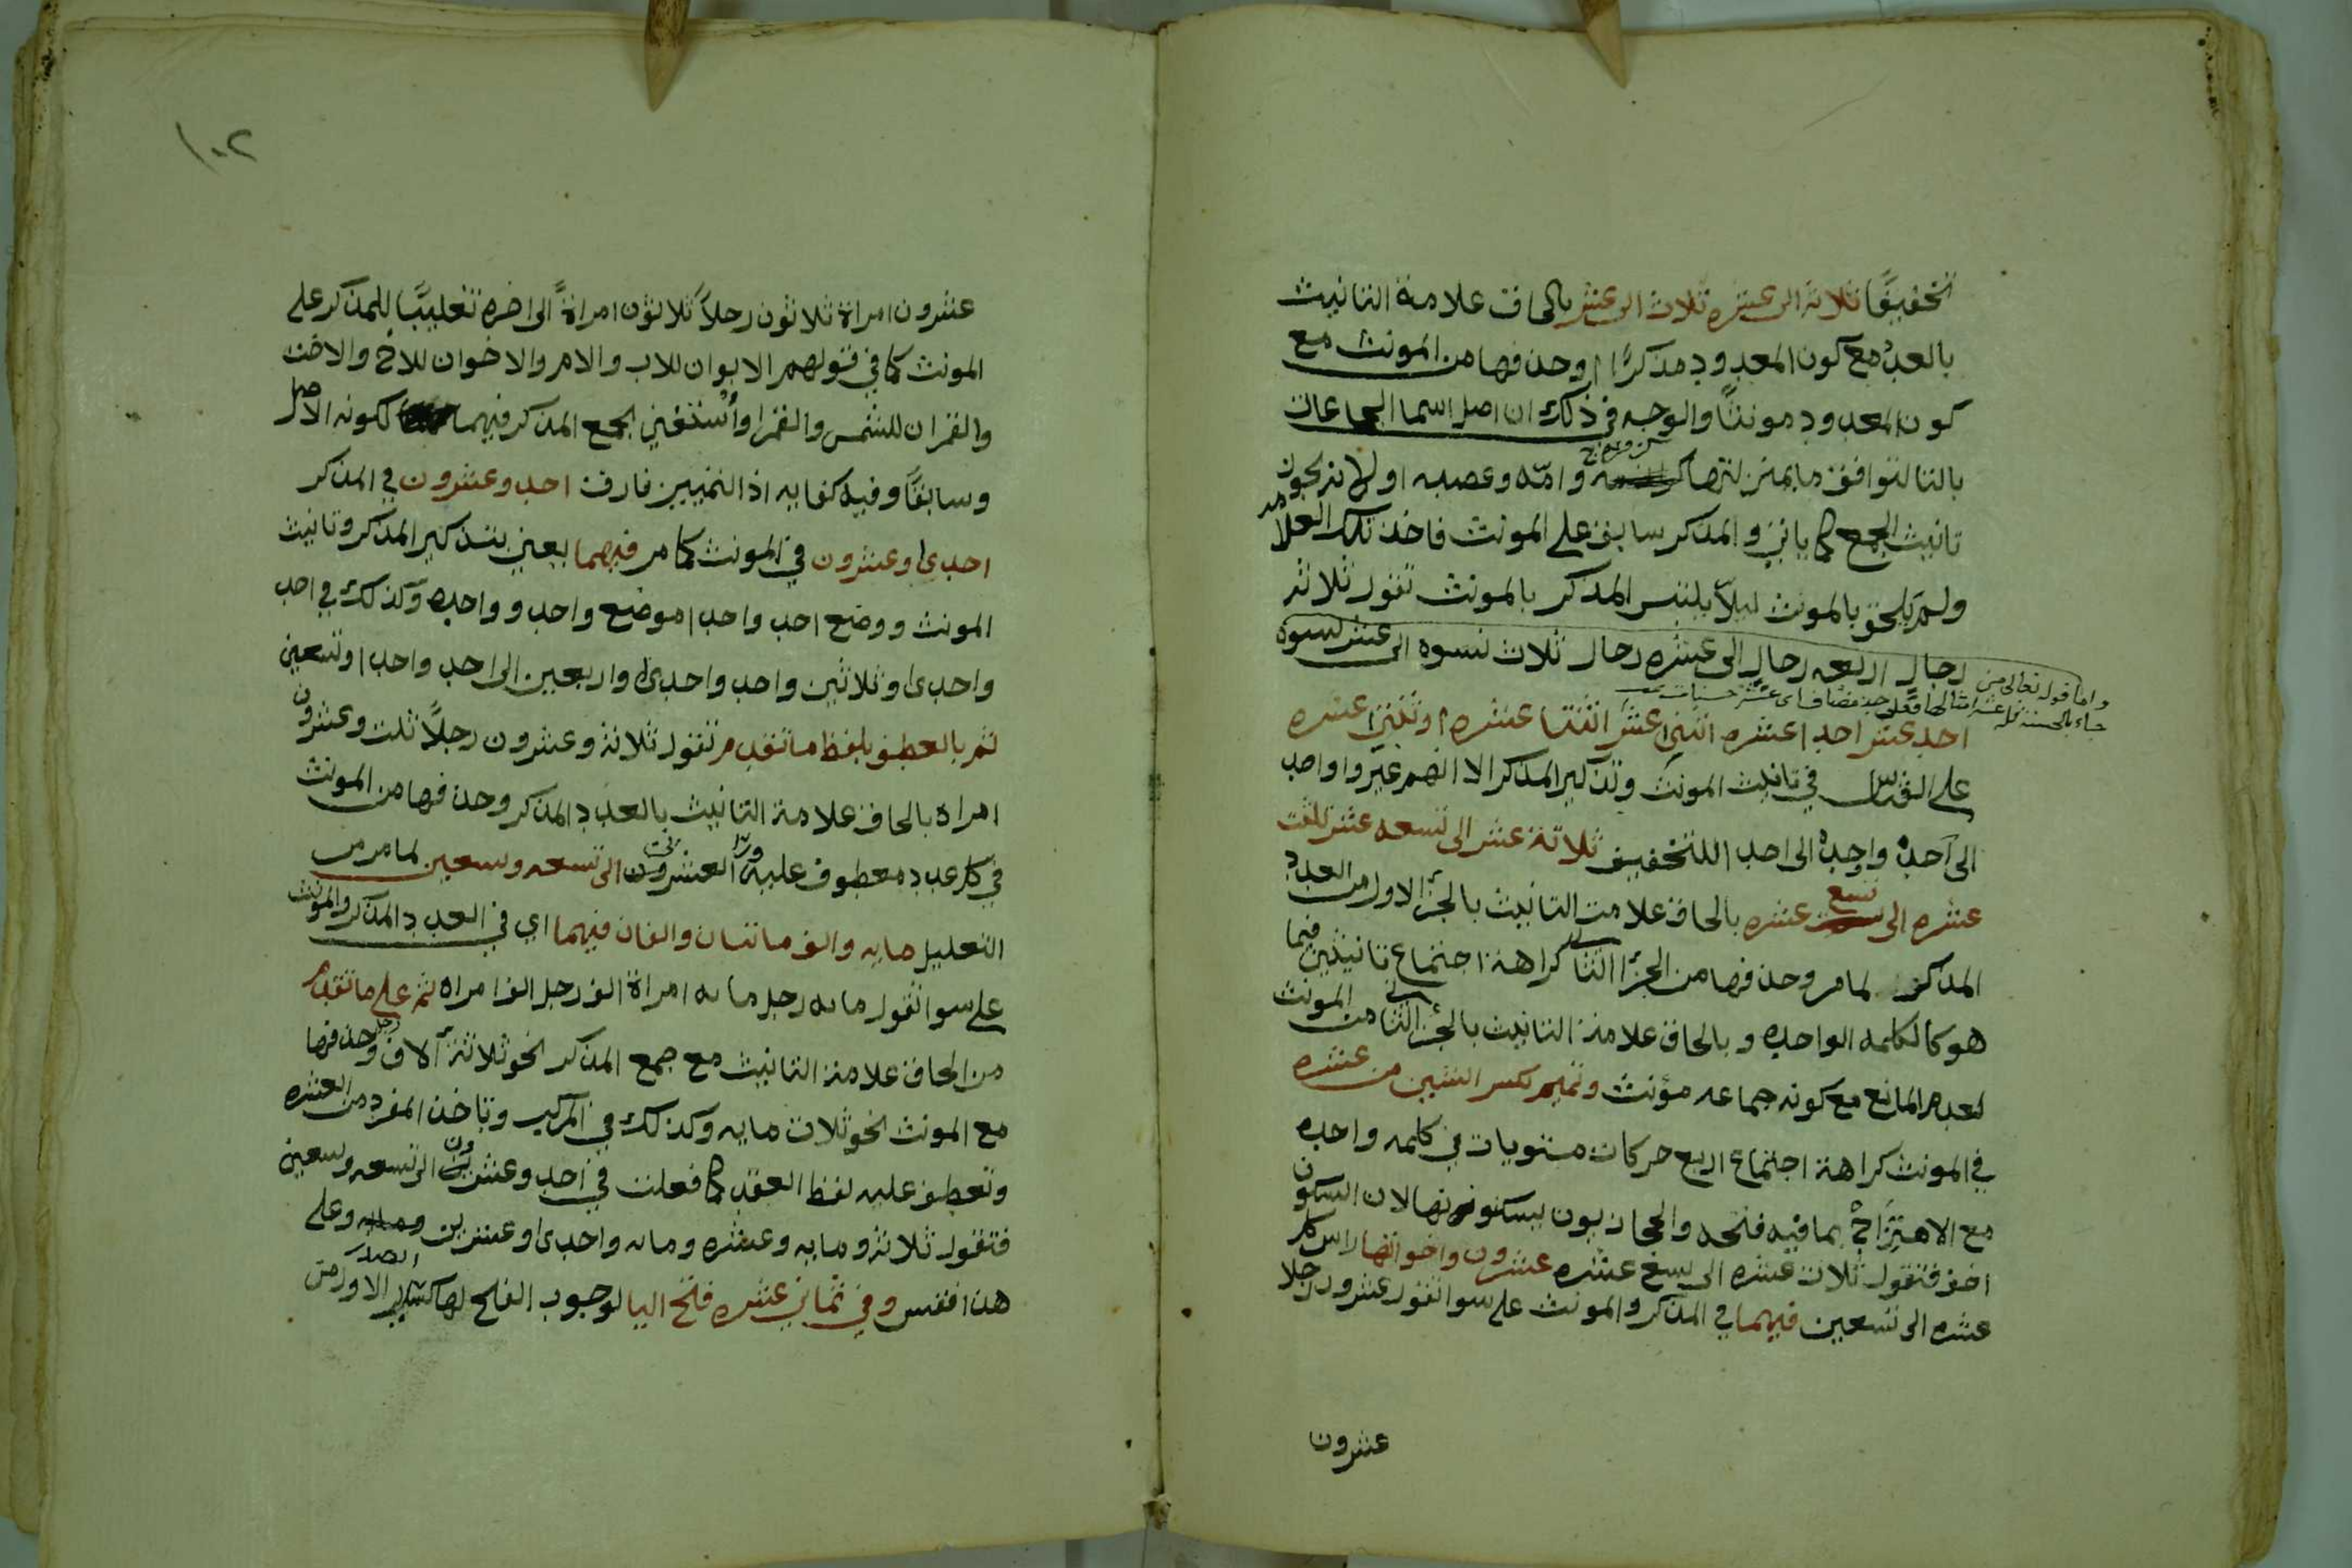 تخفيفًا ثلاثة الى عشره ثلاث الى عشر بالحاق علامة التانيث
بالعدد مع كون المعدود مذكرًا وحذفها من المونث مع
كون المعدود مونثًا والوجه في ذلك ان اصل اسما الجماعات
بالتا لتوافق ما بمنزلتها وامه وعصبه اولا نزيحون
تانيث الجمع كما ياتي والمذكر سابق على المونث فاخذ تلك العلامه
ولم تلحق بالمونث ليلا يلتبس المذكر بالمونث تقول ثلاثه
رجال اربعه رجال الى عشره رجال ثلاث نسوه الى عشر نسوه
واما قوله تعالى من
جاء بالحسنة فله عشر امثالها فعلى حذف مضاف اى عشر حسنات
احد عشر احدا عشره اثنى عشر اثنتا عشره او ثنتا عشره
على القياس في تانيث المونث وتذكير المذكر الا انهم غيروا واحد
الى احد واحده الى احدا للتخفيف ثلاثة عشر الى تسعه عشر ثلاث
عشره الى تسع عشره بالحاق علامت التانيث بالجزء الاول من العدد
المذكر لما مر وحذفها من الجزا الثاني كراهة اجتماع تانيثين فيما
هو كالكلمه الواحده وبالحاق علامة التانيث بالجزء الثاني من المونث
لعدم المانع مع كونه جماعه مؤنث وتميم تكسر الشين من عشره
في المونث كراهة اجتماع اربع حركات متويات في كلمه واحده
مع الامتزاج بما فيه فتحه والحجازيون يسكنونها لان السكون
اخف فتقول ثلاث عشره الى تسع عشره عشرون واخواتها راس كل
عشره الى تسعين فيهما في المذكر والمونث على سوا تقول عشرون رجلا
عشرون
١٠٢
عشرون امراة ثلاثون رجلاً ثلاثون امراةً الى اخره تغليبًا للمذكر على
المونث كما في قولهم الابوان للاب والام والاخوان للاخ والاخت
والقمران للشمس والقمر او أستغني بجمع المذكر فيهما لكونه الاصل
وسابقًا وفيه كفايه اذ التمييز فارق احد وعشرون في المذكر
احدى وعشرون في المونث كما مر فيهما يعني بتذكير المذكر وتانيث
المونث ووضع احد واحدا موضع واحد وواحده وكذلك في احد
واحدى وثلاثين واحد واحدى واربعين الى احد واحدا وتسعين
ثم بالعطف بلفظ ما تقدم تقول ثلاثة وعشرون رجلاً ثلث وعشرون
امراه بالحاق علامة التانيث بالعدد المذكر وحذفها من المونث
في كل عدد معطوف عليه العشرون الى تسعه وتسعين لما مر من
التعليل مايه والف ماتتان والفان فيهما اي في العدد المذكر والمونث
على سوا تقول مايه رجل مايه امراة الف رجل الف امراه ثم على ما تقدم
من الحاق علامة التانيث مع جمع المذكر نحو ثلاثة آلاف رجل وحذفها
مع المونث نحو ثلاث مايه وكذلك في المركب وتاخذ المفرد من العشره
وتعطف عليه لفظ العقد كما فعلت في احد وعشرون الى تسعه وتسعين
فتقول ثلاثة ومايه وعشره ومايه واحدى وعشرين ومايه وعلى
هذا فقس وفي ثماني عشره فتح اليا لوجوب الفتح لها